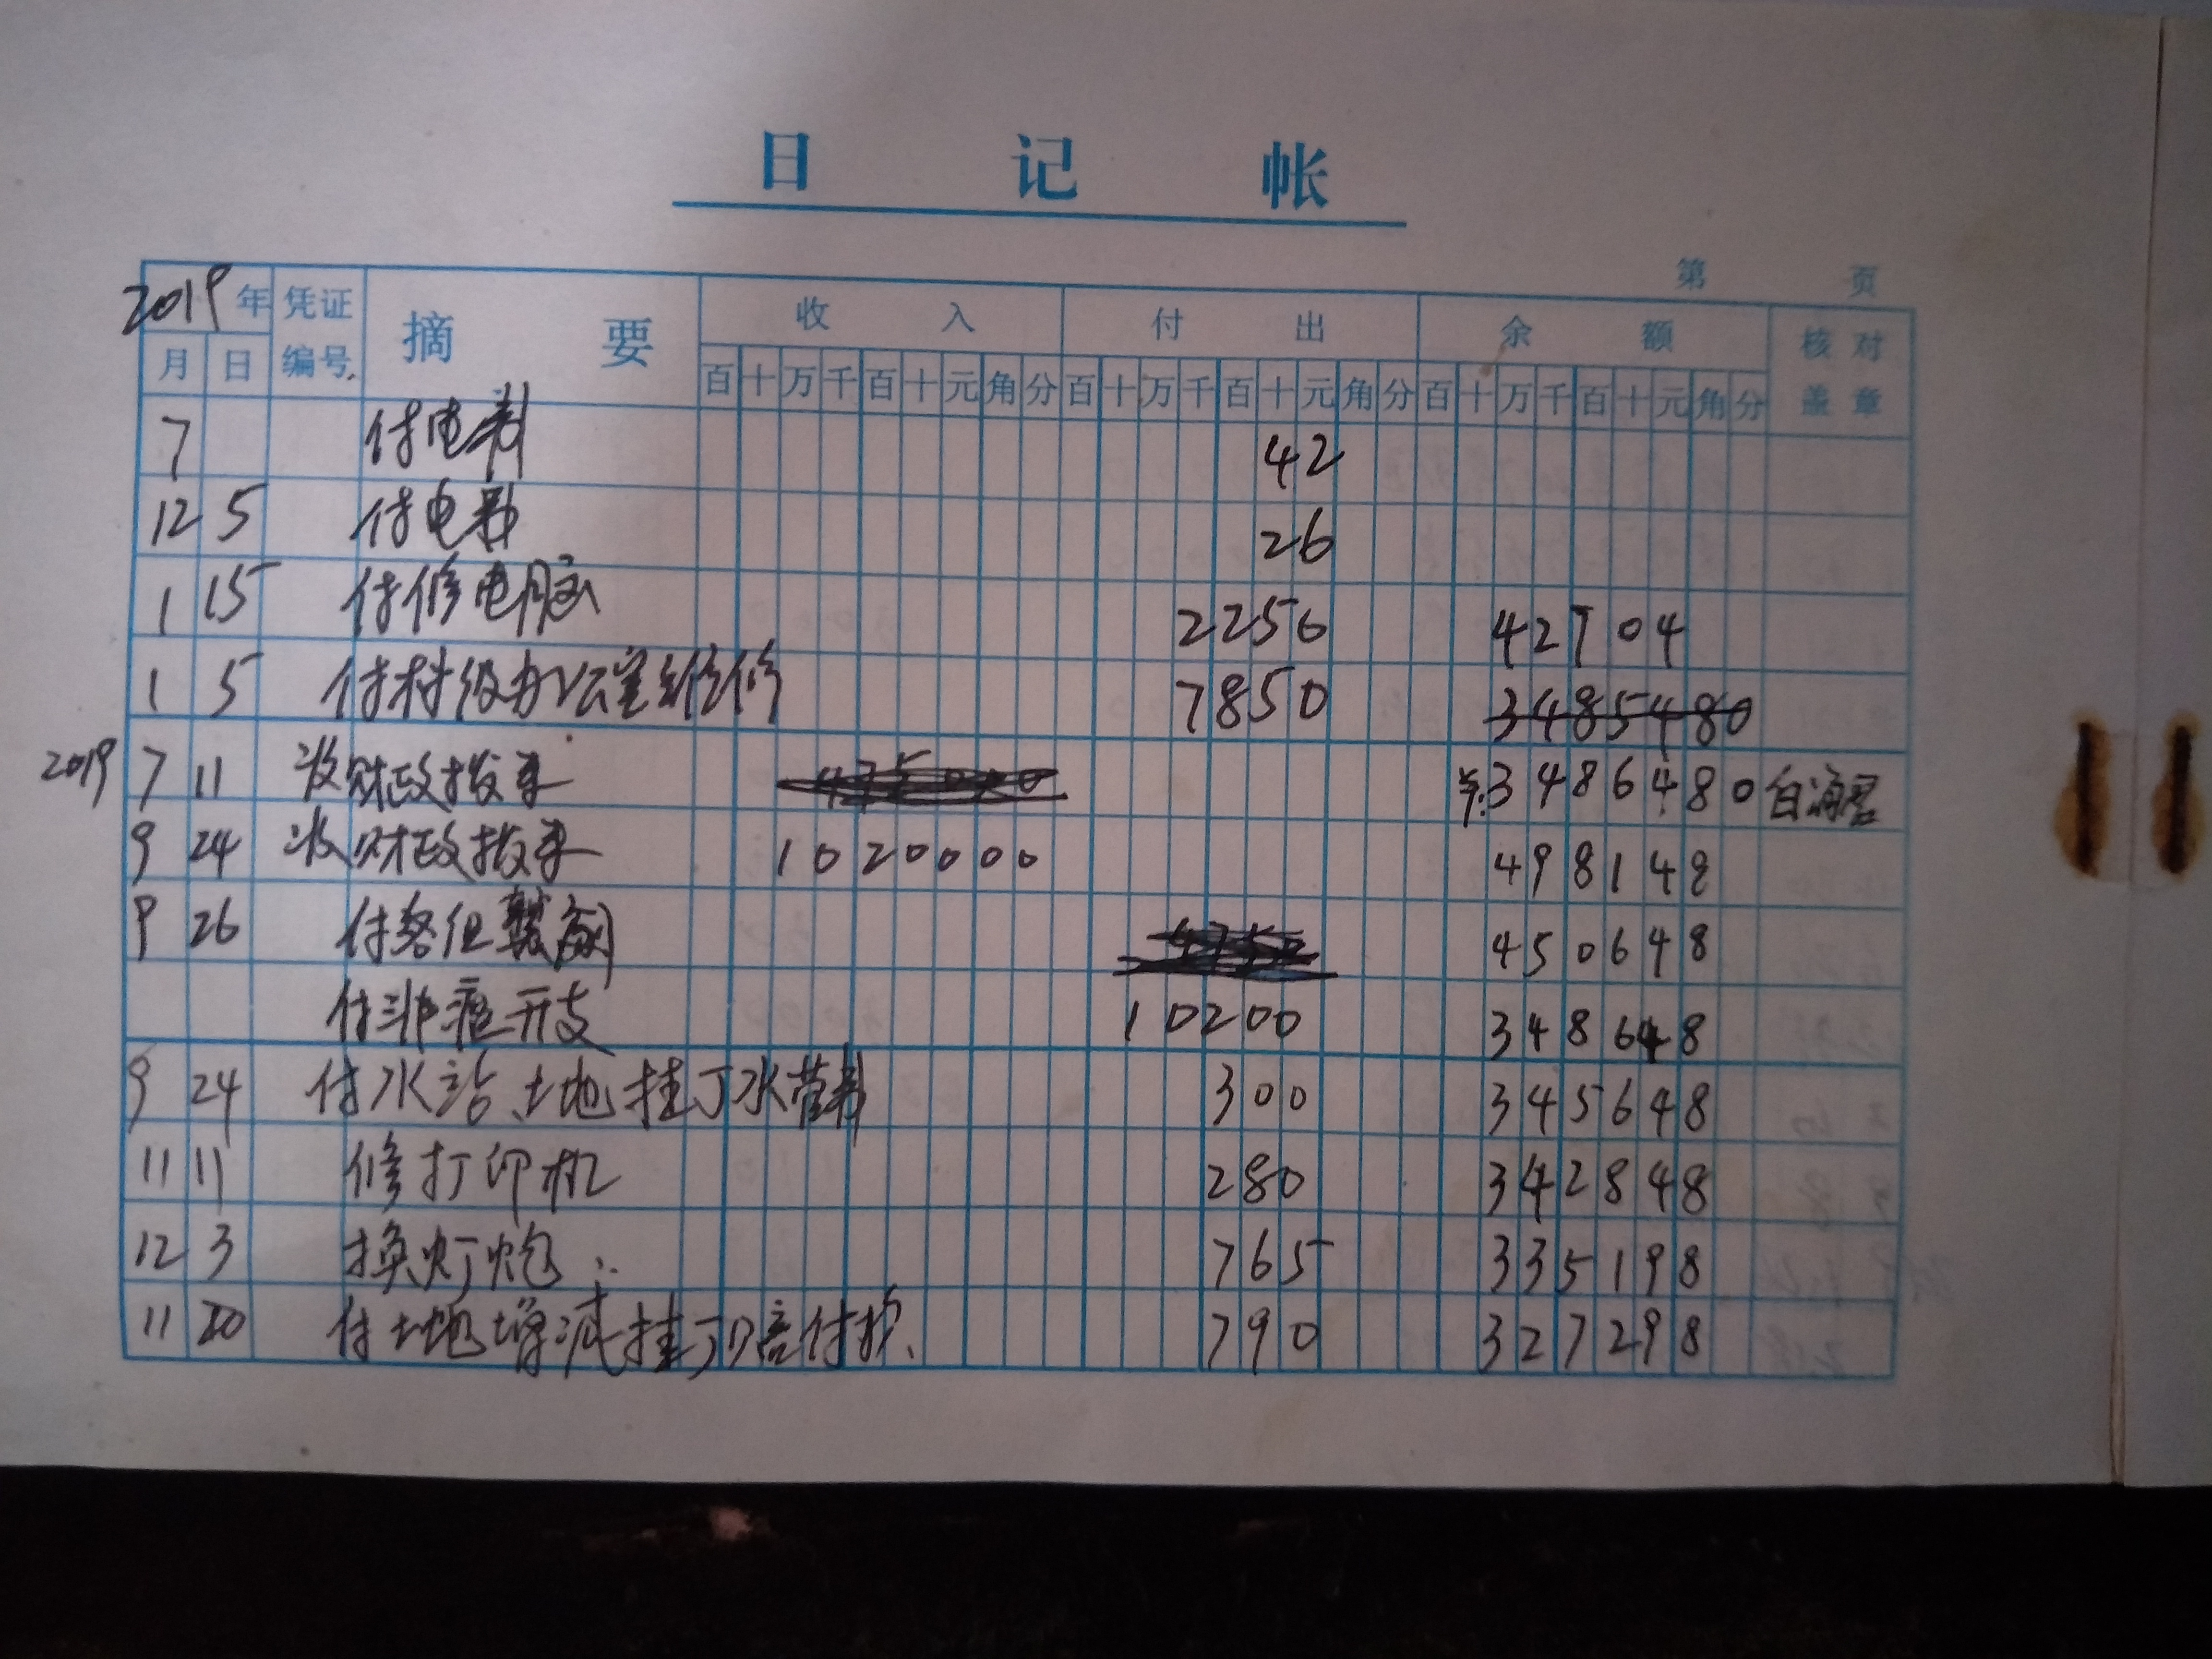 日记帐
第 页
2019年 凭证编号 摘要 收入 付出 余额 核对盖章
月 日 百十万千百十元角分 百十万千百十元角分 百十万千百十元角分
7 付电费 42
12 5 付电费 26
1 15 付修电脑 2256 42704
1 5 付村级办公室维修 7850 3485480
2019 7 11 收财政拨来 ¥:3486480
9 24 收财政拨来 1020000 498148
9 26 付 450648
付非瘟开支 10200 348648
9 24 付水站、土地挂丁水管费 300 345648
11 11 修打印机 280 342848
12 3 换灯炮 765 335198
11 20 付土地增减挂丁赔付 790 327298